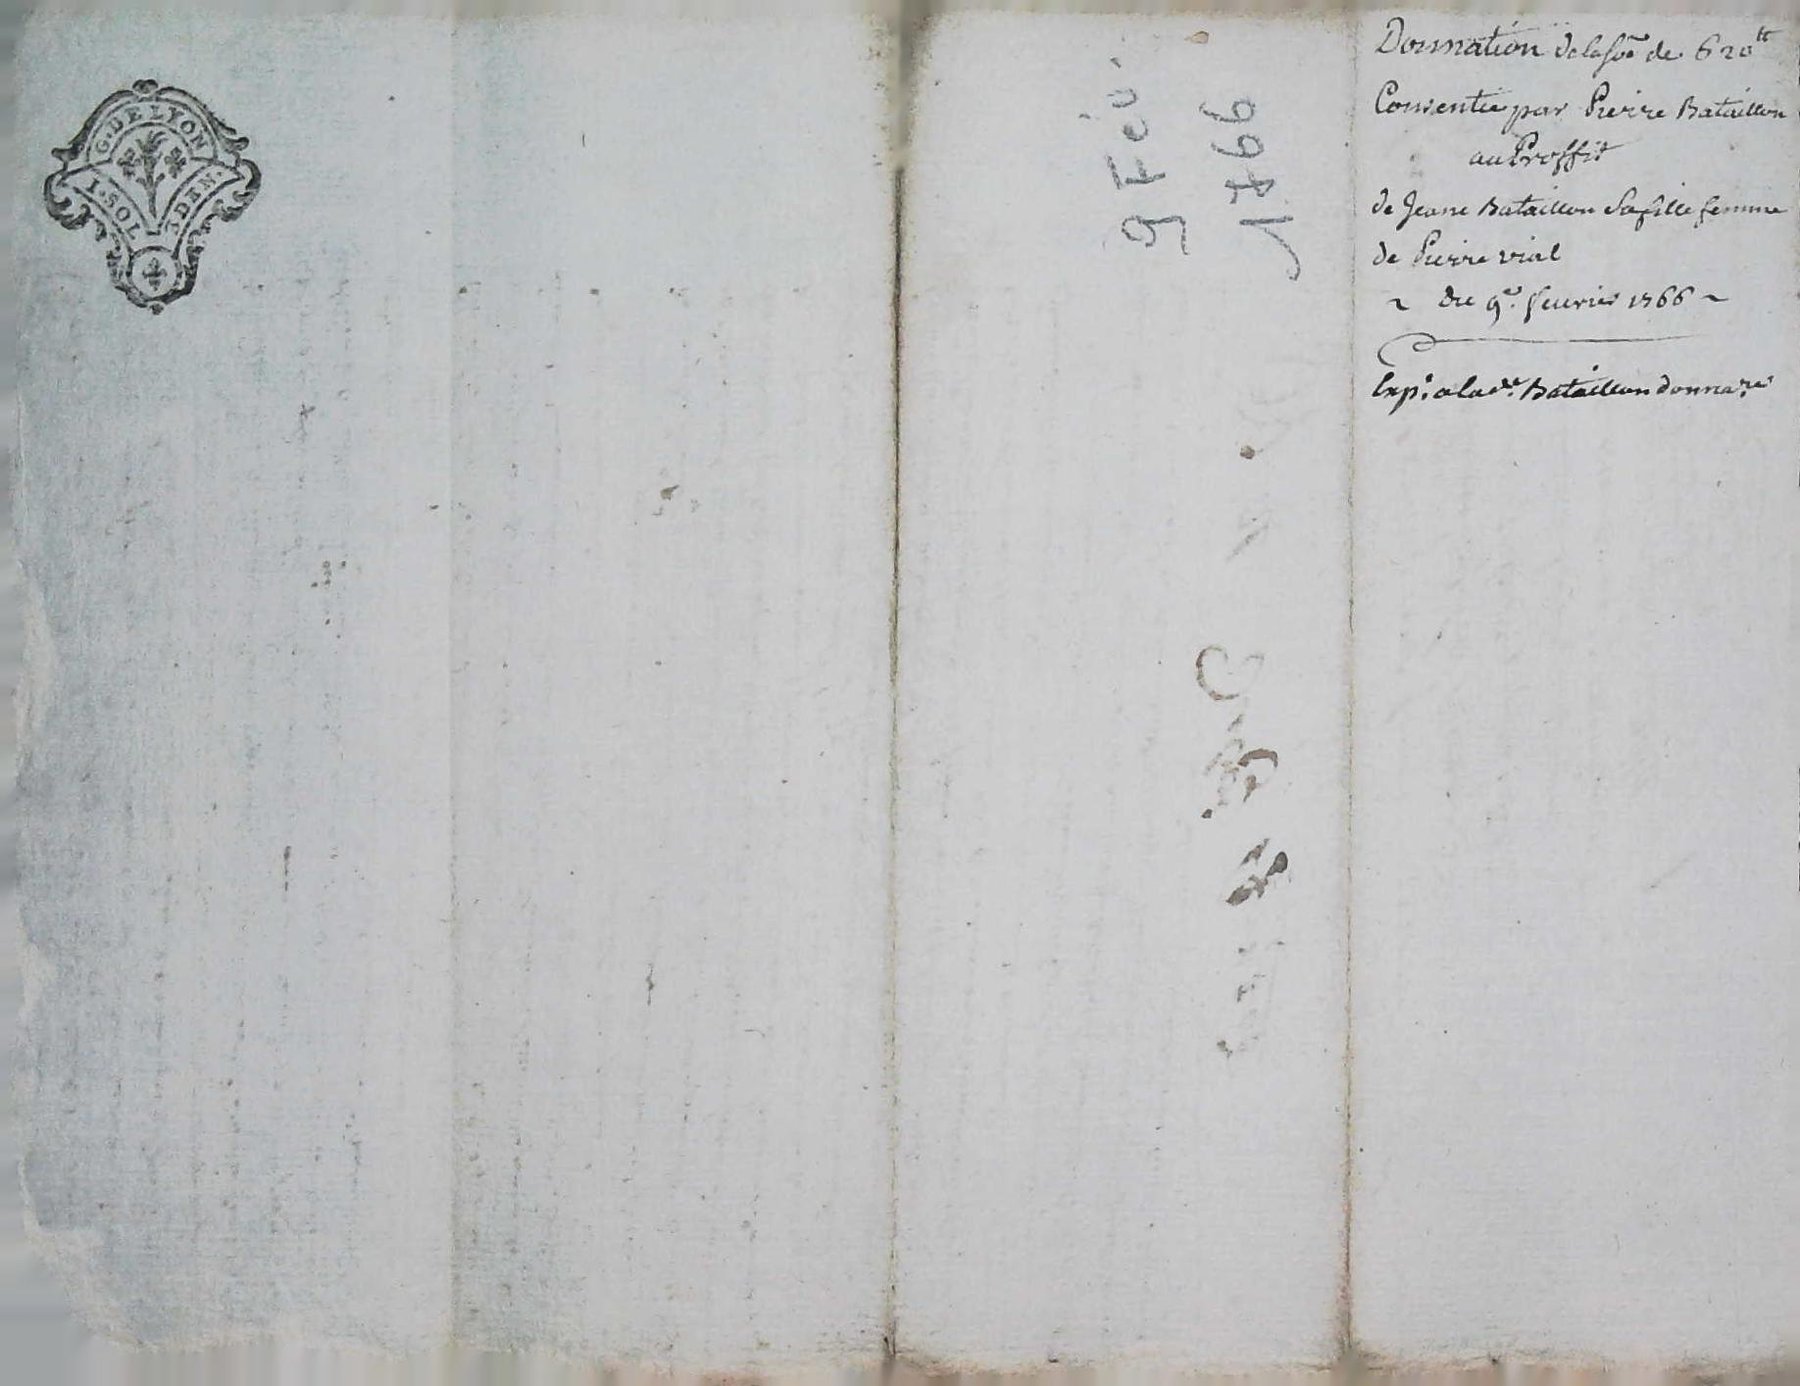 G. DE LYON
1. SOL 3 DEN.
9 Fév.
1766
Donnation de la sõe de 620ᵗᵗ
Consentie par Pierre Bataillon
au Proffit
de Jeane Bataillon Sa fille femme
de Pierre vial
~ du 9ᵉ. feuvrier 1766 ~
Exp. a la dᵗᵉ. Bataillon donnaʳᵉ